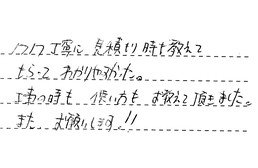 丁寧に 見積もり時も教えて
もらって わかりやすかった。
工事の時も 使い方も お教えて頂きました。
また お願いします!!